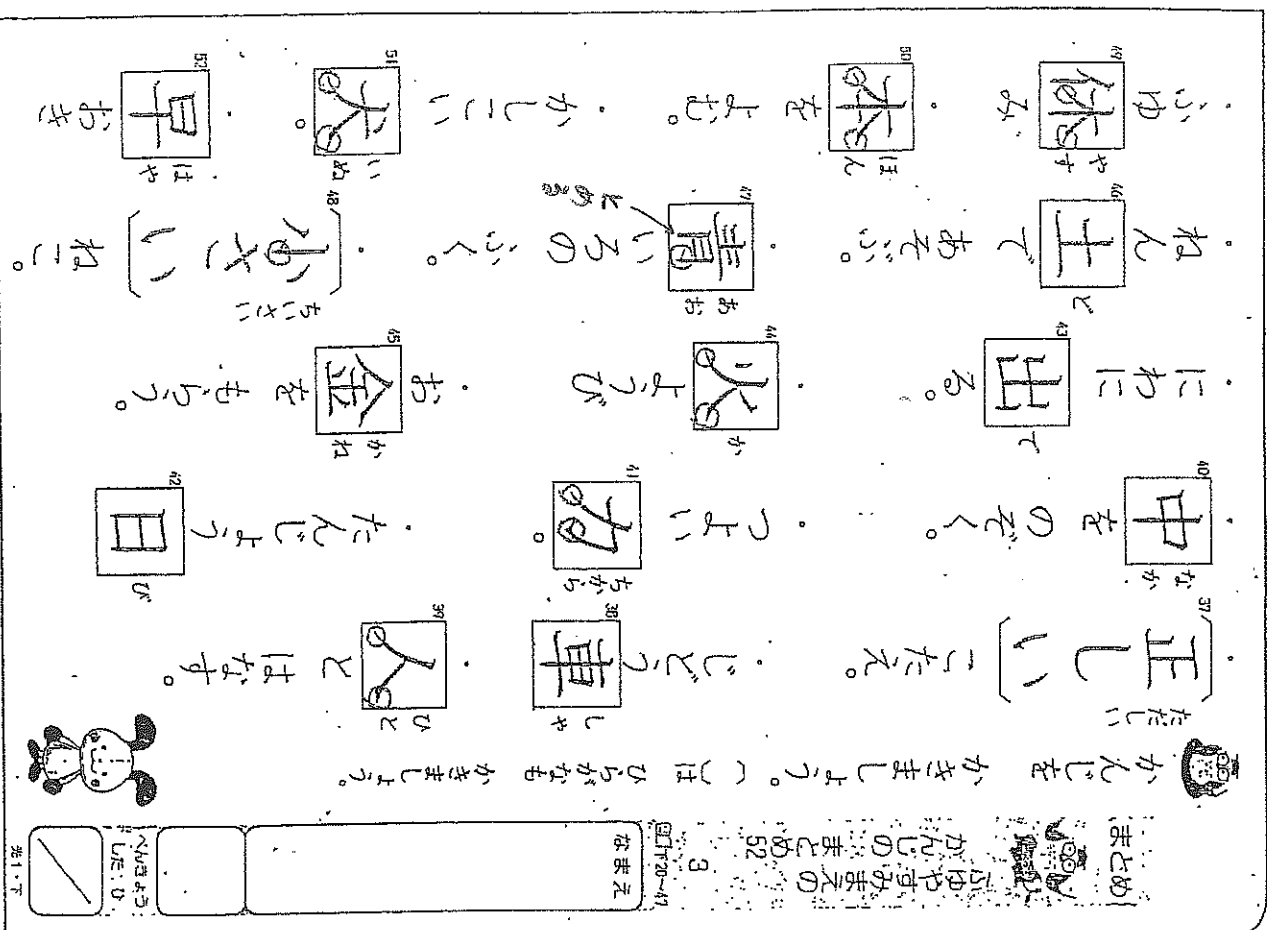 まとめ
ふゆやすみまえの
かんじの まとめ52
3
下20~47
なまえ
べんきょう
した ひ
光1・下
かんじを かきましょう。( )は ひらがなも かきましょう。
37 (正しい) ただしい こたえ。
38 じどう車 しゃ
39 人 ひと と はなす。
40 中 なか を のぞく。
41 つよい 力 ちから。
42 たんじょう日 び
43 にわに 出 で る。
44 火 か ようび
45 お金 かね を もらう。
46 ねん土 ど で あそぶ。
47 青 あお いろの ふく。
とめる
48 (小さい) ちいさい ねこ。
49 ふゆ休 やす み
50 本 ほん を よむ。
51 かしこい 犬 いぬ。
52 早 はや おき